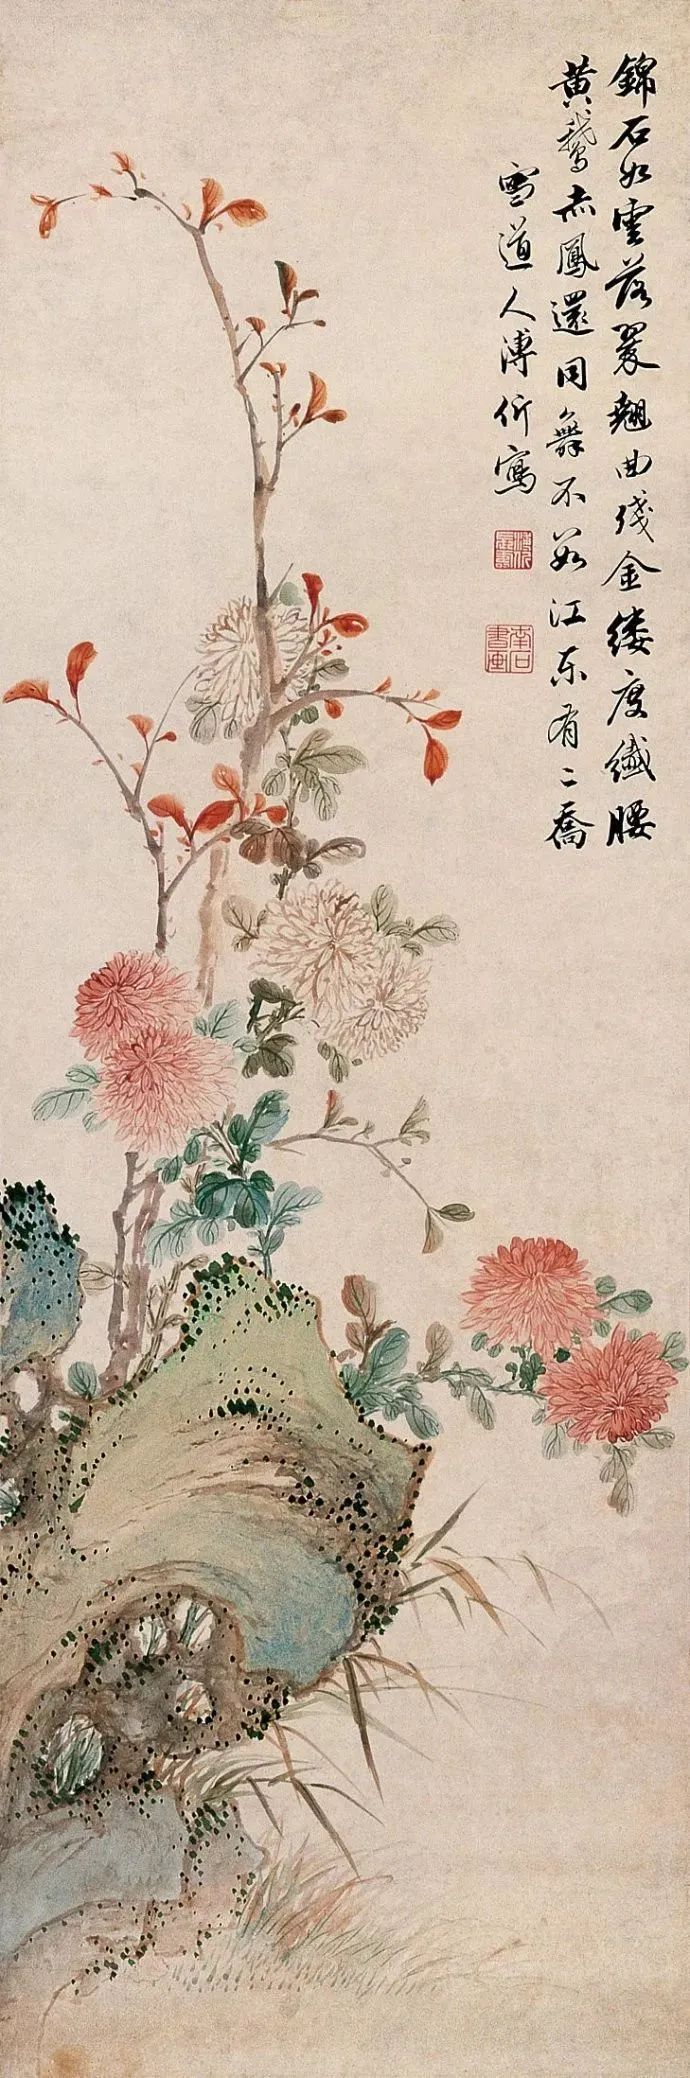 錦石如雲落翠翹曲殘金縷度纖腰
黃鵝赤鳳還同舞不數江東有二喬
雪道人溥伒寫
南石書畫